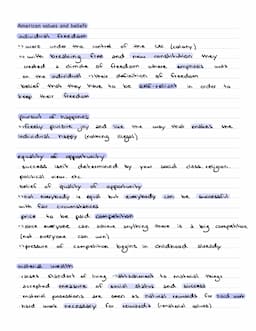 American values and beliefs
individual freedom
were under the control of the UK (colony)
with breaking free and new constitution they
created a climate of freedom where emphasis was
on the individual their definition of freedom
belief that they have to be self-reliant in order to
keep their freedom
pursuit of happiness
freely pursue joy and live the way that makes the
individual happy (nothing illegal)
equality of opportunity
success isn't determined by your social class, religion,
political view, etc.
belief of quality of opportunity
not everybody is equal but everybody can be successful
with fair circumstances
price to be paid: competition
once everyone can achieve anything there is a big competition
(not everyone can win)
pressure of competition begins in childhood already
material wealth
high standart of living attachment to material things
accepted measure of social status and success
material possessions are seen as natural rewards for hard work
hard work necessary for rewards (material values)